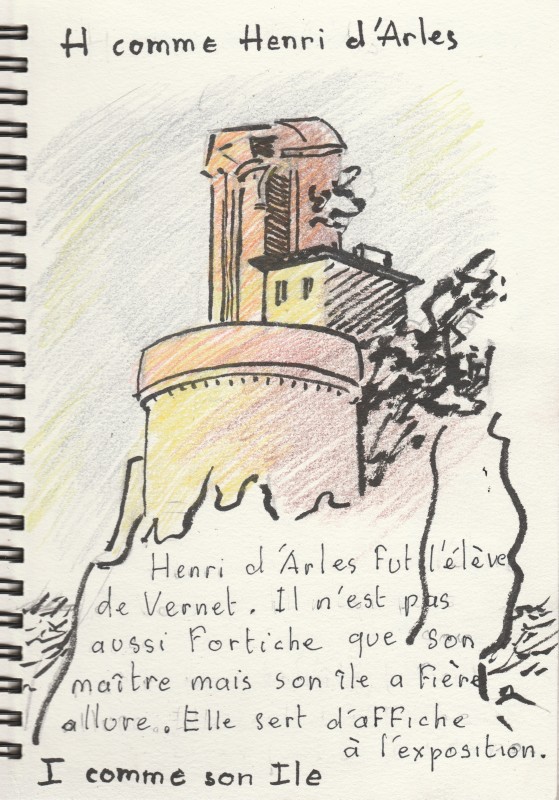 H comme Henri d'Arles
Henri d'Arles fut l'élève
de Vernet. Il n'est pas
aussi fortiche que son
maître mais son île a fière
allure. Elle sert d'affiche
à l'exposition.
I comme son Ile